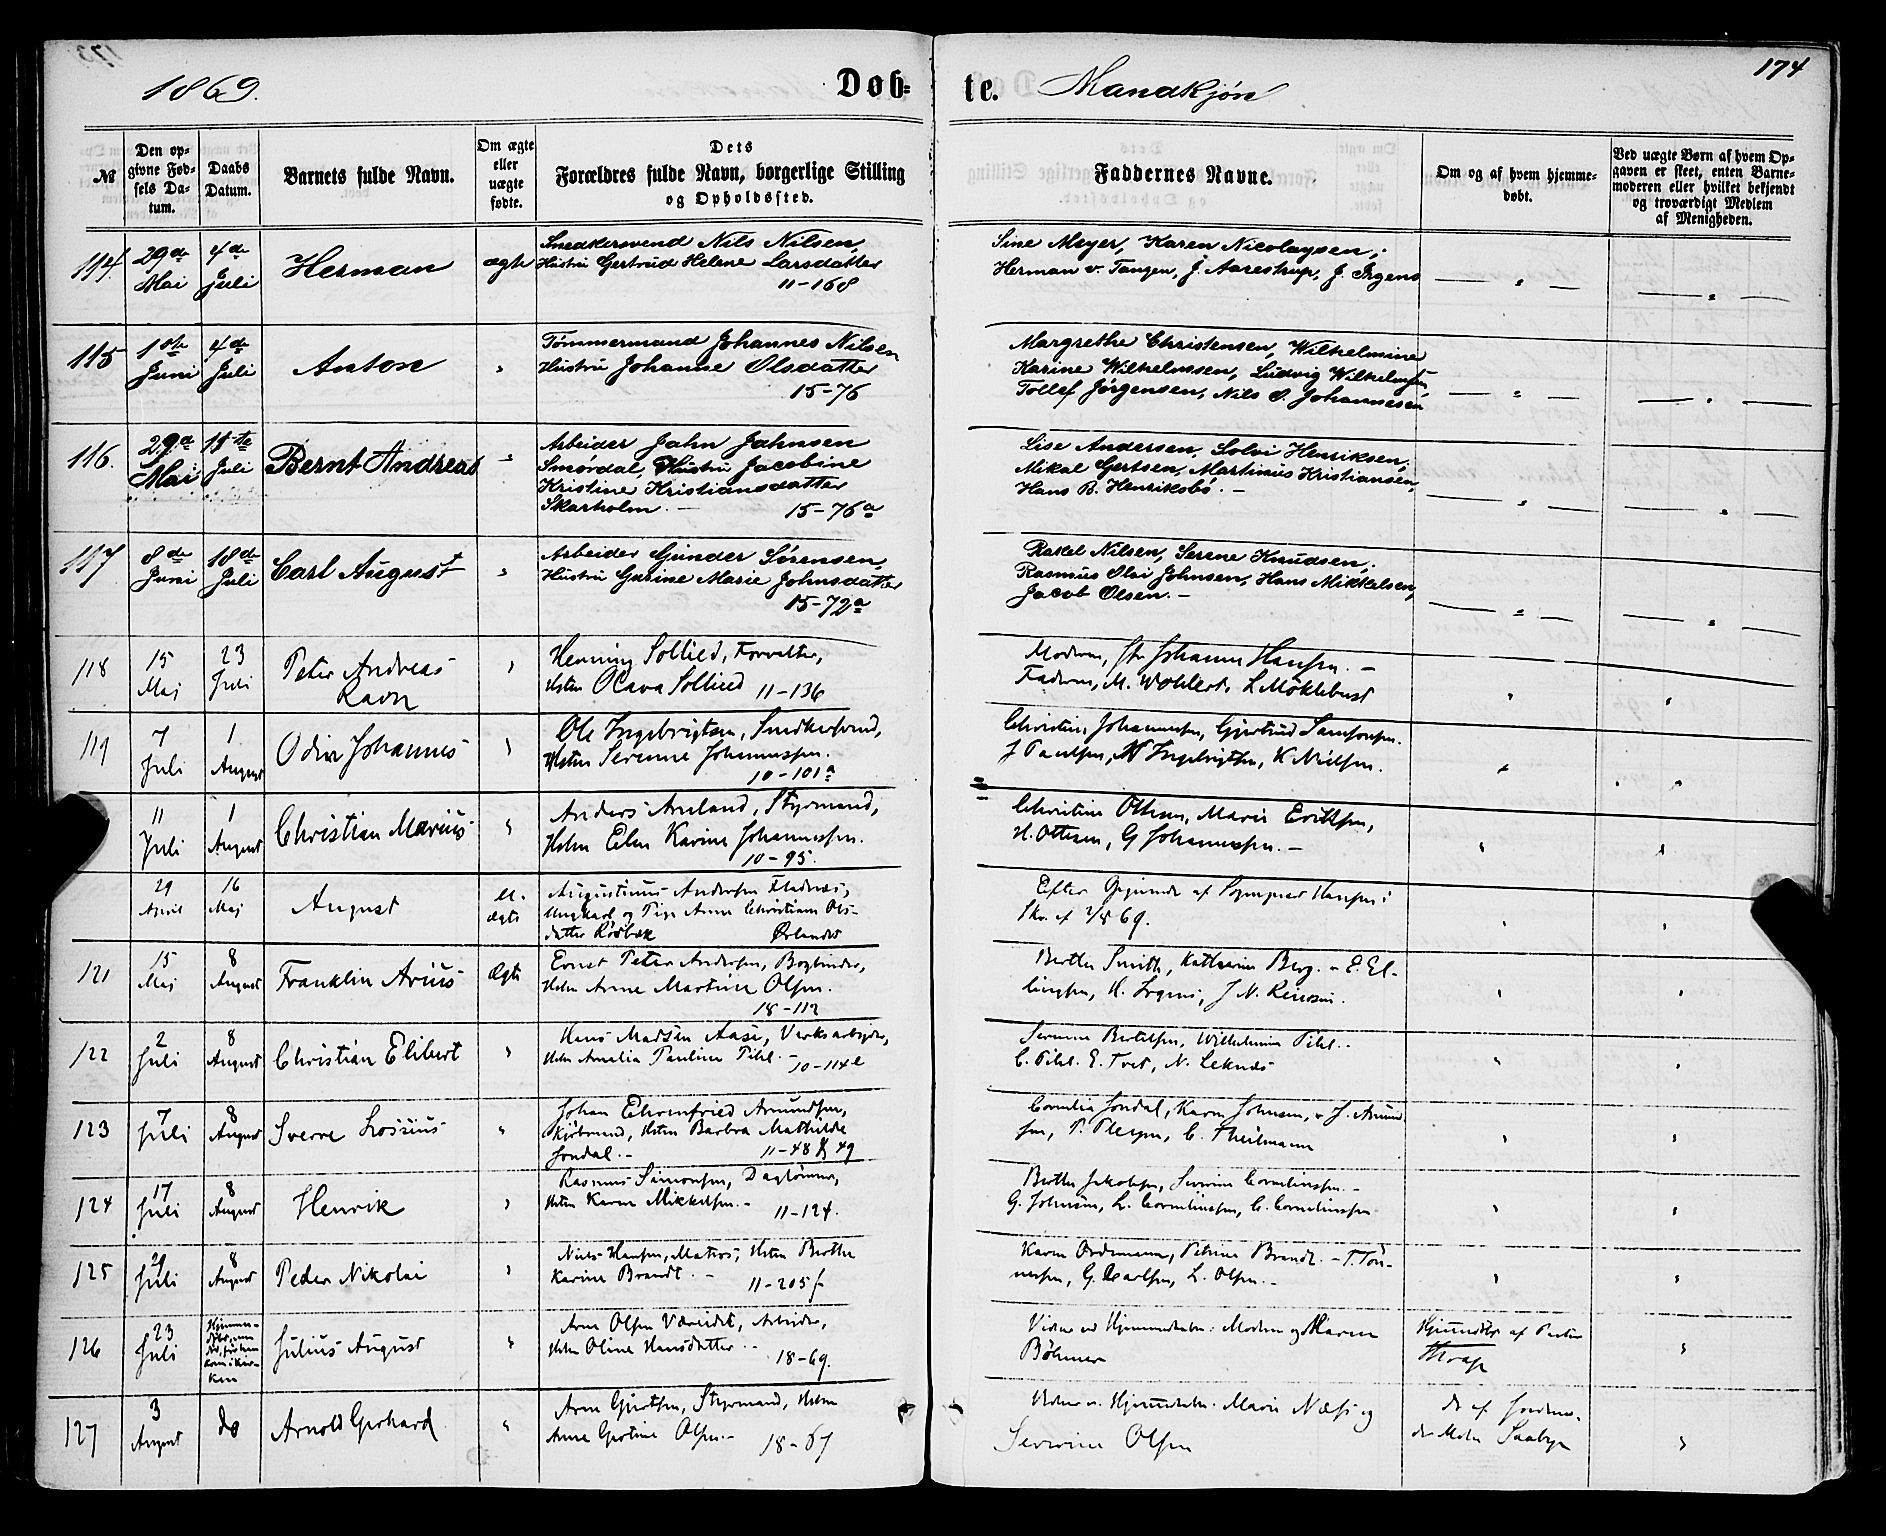 174
1869.
Døb-
te.
Mandkjøn
№
Den op-
givne Fød-
sels Da-
tum.
Daabs
Datum.
Barnets fulde Navn.
Om ægte
eller
uægte
fødte.
Dets
Forældres fulde Navn, borgerlige Stilling
og Opholdssted.
Faddernes Navne.
Om og af hvem hjemme-
døbt.
Ved uægte Børn af hvem Op-
gaven er skeet, enten Barne-
moderen eller hvilket bekjendt
og troværdigt Medlem
af Menigheden.
114.
29de
Mai
4de
Juli
Herman
ægte
Snedkersvend Nils Nilsen,
Hustru Gertrud Helene Larsdatter
11-168
Sine Meyer, Karen Nicolaysen;
Herman v. Tangen, J. Aarestrup, J. Irgens
115
1ste
Juni
4de
Juli
Anton
Tømmermand Johannes Nilsen
Hustru Johanne Olsdatter
15-76
Margrethe Christensen, Wilhelmine
Karine Wilhelmsen, Ludvig Wilhelmsen,
Tollef Jørgensen, Nils O. Johannesen
116.
29de
Mai
11te
Juli
Bernt Andreas
Arbeider Jahn Jahnsen
Smørdal, Hustru Jacobine
Kristine Kristiansdatter
Skarholm. -
15-76a
Lise Andersen, Solvi Henriksen,
Mikal Gertsen, Martinus Kristiansen,
Hans B. Henriksbø. -
117
8de
Juni
18de
Juli
Carl August
Arbeider Gunder Sørensen,
Hustru Gurine Marie Johnsdatter
15-72a
Rakel Nilsen, Serene Knudsen,
Rasmus Olai Johnsen, Hans Mikkelsen,
Jacob Olsen. -
118
15
Maj
23
Juli
Peter Andreas
Ravn
Henning Sollied, Forvalter,
Olava Sollied 11-136
Moderen, Johanne Hansen. -
Faderen, M. Wohlert, L Möklebust
119
7
Juli
1
August
Odin Johannes
Ole Ingebrigtsen, Snedkersvend,
Serenne Johannessen.
10-101a
Christine Johannesen, Gjertrud Samsonsen.
J Paulsen, Ingebrigtsen, K Nielsen.
11
Juli
1
August
Christian Marius
Anders Aasland, Styrmand,
Elen Karine Johannessen.
10-95.
Christine Ottesen, Marie Eriksen,
H. Ottesen, G Johannessen. -
29
April
16
Maj
August
u.
ægte
Augustinus Andersen Fladnæs,
Ungkarl og Pige Anne Christiane Ols-
datter Rødbæk Ørlandet
Efter af Sogneprest Hansen:
Skr. af 2/8 69.
121
15
Maj
8
August
Franklin Arius
Ægte
Ernst Peter Andersen, Bogbinder,
Anne Martine Olsen.
18-112
Berthe Smith, Kathrine Berg. - E. El-
lingsen, H. Irgens, J N. Reiersen.
122
2
Juli
8
August
Christian Elibert
Hans Madsen Aase, Verksarbejder,
Amalia Pauline Pihl. -
10-114e
Serenne Bertelsen, Wilhelmine Pihl. -
C. Pihl. E. Tvet, N. Leknæs
123
7
Juli
8
August
Sverre Lossius
Johan Ehrenfried Amundsen,
Kjøbmand, Barbra Mathilde
Jondal. -
11-48 & 49
Cornelia Jondal, Karen Johnsen, J. Amund-
sen, C. Theilmann
124
17
Juli
8
August
Henrik
Rasmus Simonsen, Dagtømmer,
Karen Mikkelsen. -
11-124.
Berthe Jakobsen, Severine Corneliussen. -
G. Johnsen, L. Corneliussen, C. Corneliussen
125
29
Juli
8
August
Peder Nikolai
Niels Hansen, Matros, Berthe
Karine Brandt. -
11-205f
Karen Ordemann, Petrine Brandt. - T. Tøn-
nessen, G. Carlsen, L. Olsen. -
126
23
Juli
Julius August
Arne Olsen Værøidet, Arbeider,
Oline Hansdatter. -
18-69.
Vidner ved Hjemmedaaben: Moderen og Karen
Böhmer
Hjemmedøbt af Pastor
Thrap
127
3
August
do
Arnold Gerhard
Arne Gjertsen, Styrmand,
Anne Gertine Olsen. -
18-67
Vidner v. Hjemmedaaben: Marie Næss og
Severine Olsen
do af Jordemo-
der Saabye